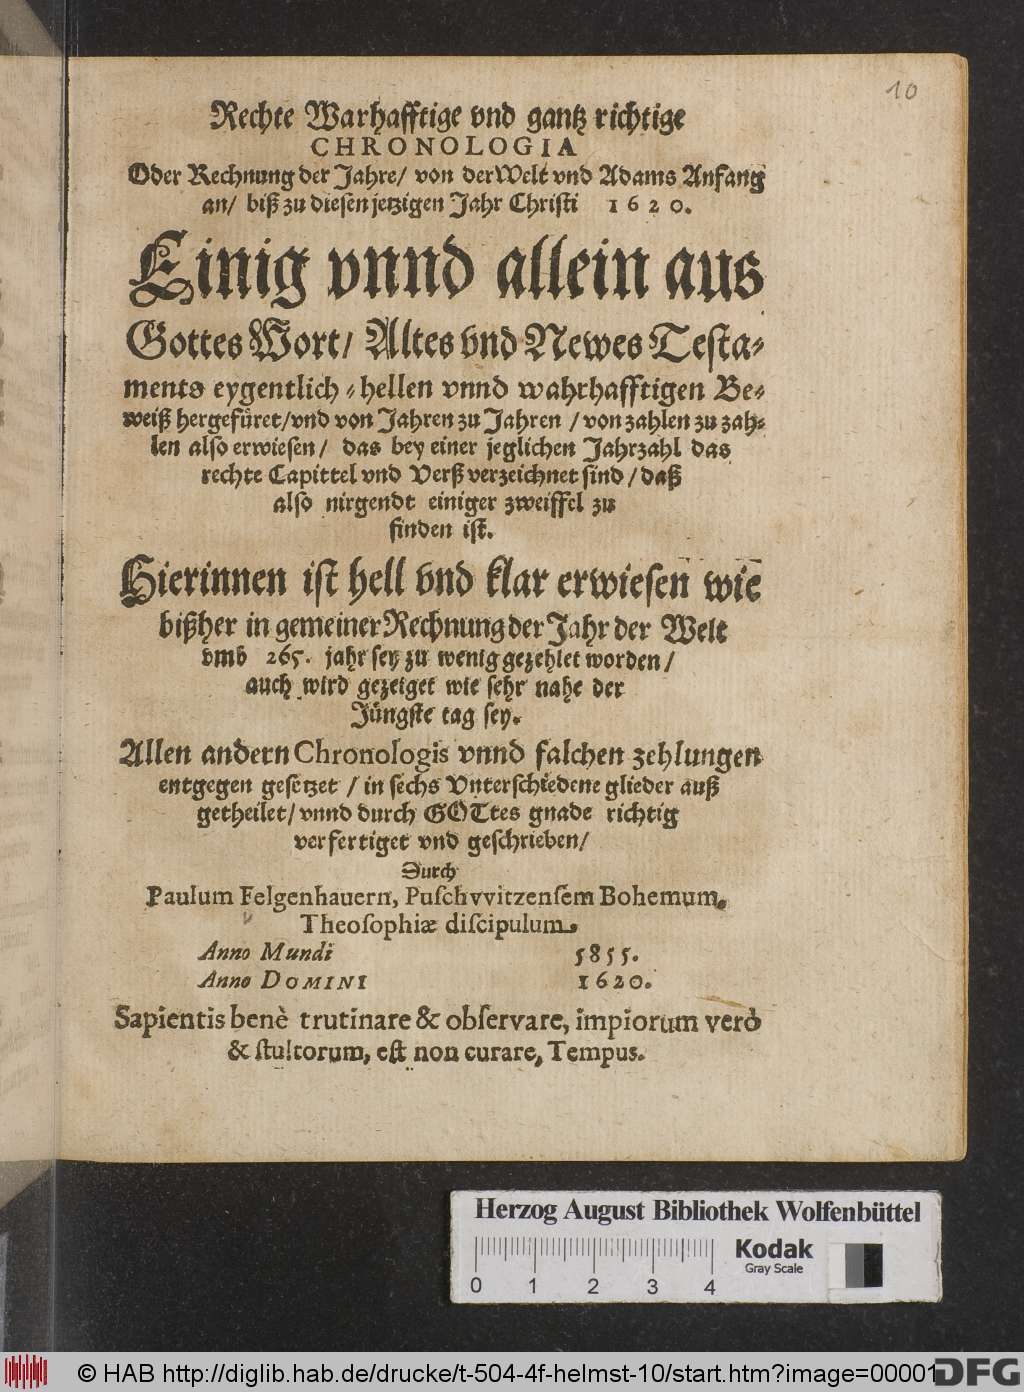 10
Rechte Warhafftige vnd gantz richtige
CHRONOLOGIA
Oder Rechnung der Jahre/ von der Welt vnd Adams Anfang
an/ biß zu diesen jetzigen Jahr Christi 1620.
Einig vnnd allein aus
Gottes Wort/ Altes vnd Newes Testa-
ments eygentlich-hellen vnnd wahrhafftigen Be-
weiß hergefüret/vnd von Jahren zu Jahren / von zahlen zu zah-
len also erwiesen/ das bey einer jeglichen Jahrzahl das
rechte Capittel vnd Verß verzeichnet sind/ daß
also nirgendt einiger zweiffel zu
finden ist.
Hierinnen ist hell vnd klar erwiesen wie
bißher in gemeiner Rechnung der Jahr der Welt
vmb 265. jahr sey zu wenig gezehlet worden/
auch wird gezeiget wie sehr nahe der
Jüngste tag sey.
Allen andern Chronologis vnnd falchen zehlungen
entgegen gesetzet / in sechs Vnterschiedene glieder auß
getheilet/ vnnd durch GOTtes gnade richtig
verfertiget vnd geschrieben/
Durch
Paulum Felgenhauern, Puschvvitzensem Bohemum,
Theosophiæ discipulum.
Anno Mundi 5855.
Anno DOMINI 1620.
Sapientis benè trutinare & observare, impiorum verò
& stultorum, est non curare, Tempus.
Herzog August Bibliothek Wolfenbüttel
Kodak
Gray Scale
0 1 2 3 4
© HAB http://diglib.hab.de/drucke/t-504-4f-helmst-10/start.htm?image=00001
DFG